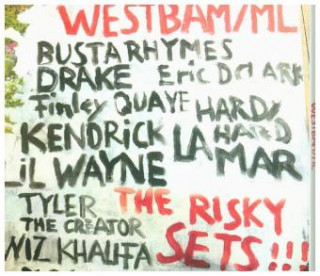 WESTBAM/ML
BUSTA RHYMES
DRAKE Eric D CLARK
Finley QUAYE HARD
KENDRICK LAMAR HAND
LiL WAYNE
TYLER THE CREATOR
THE RISKY SETS!!!
WIZ KHALIFA